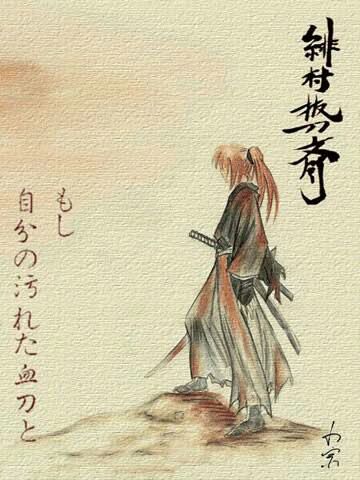 緋村抜刀斎
もし
自分の汚れた血刀と